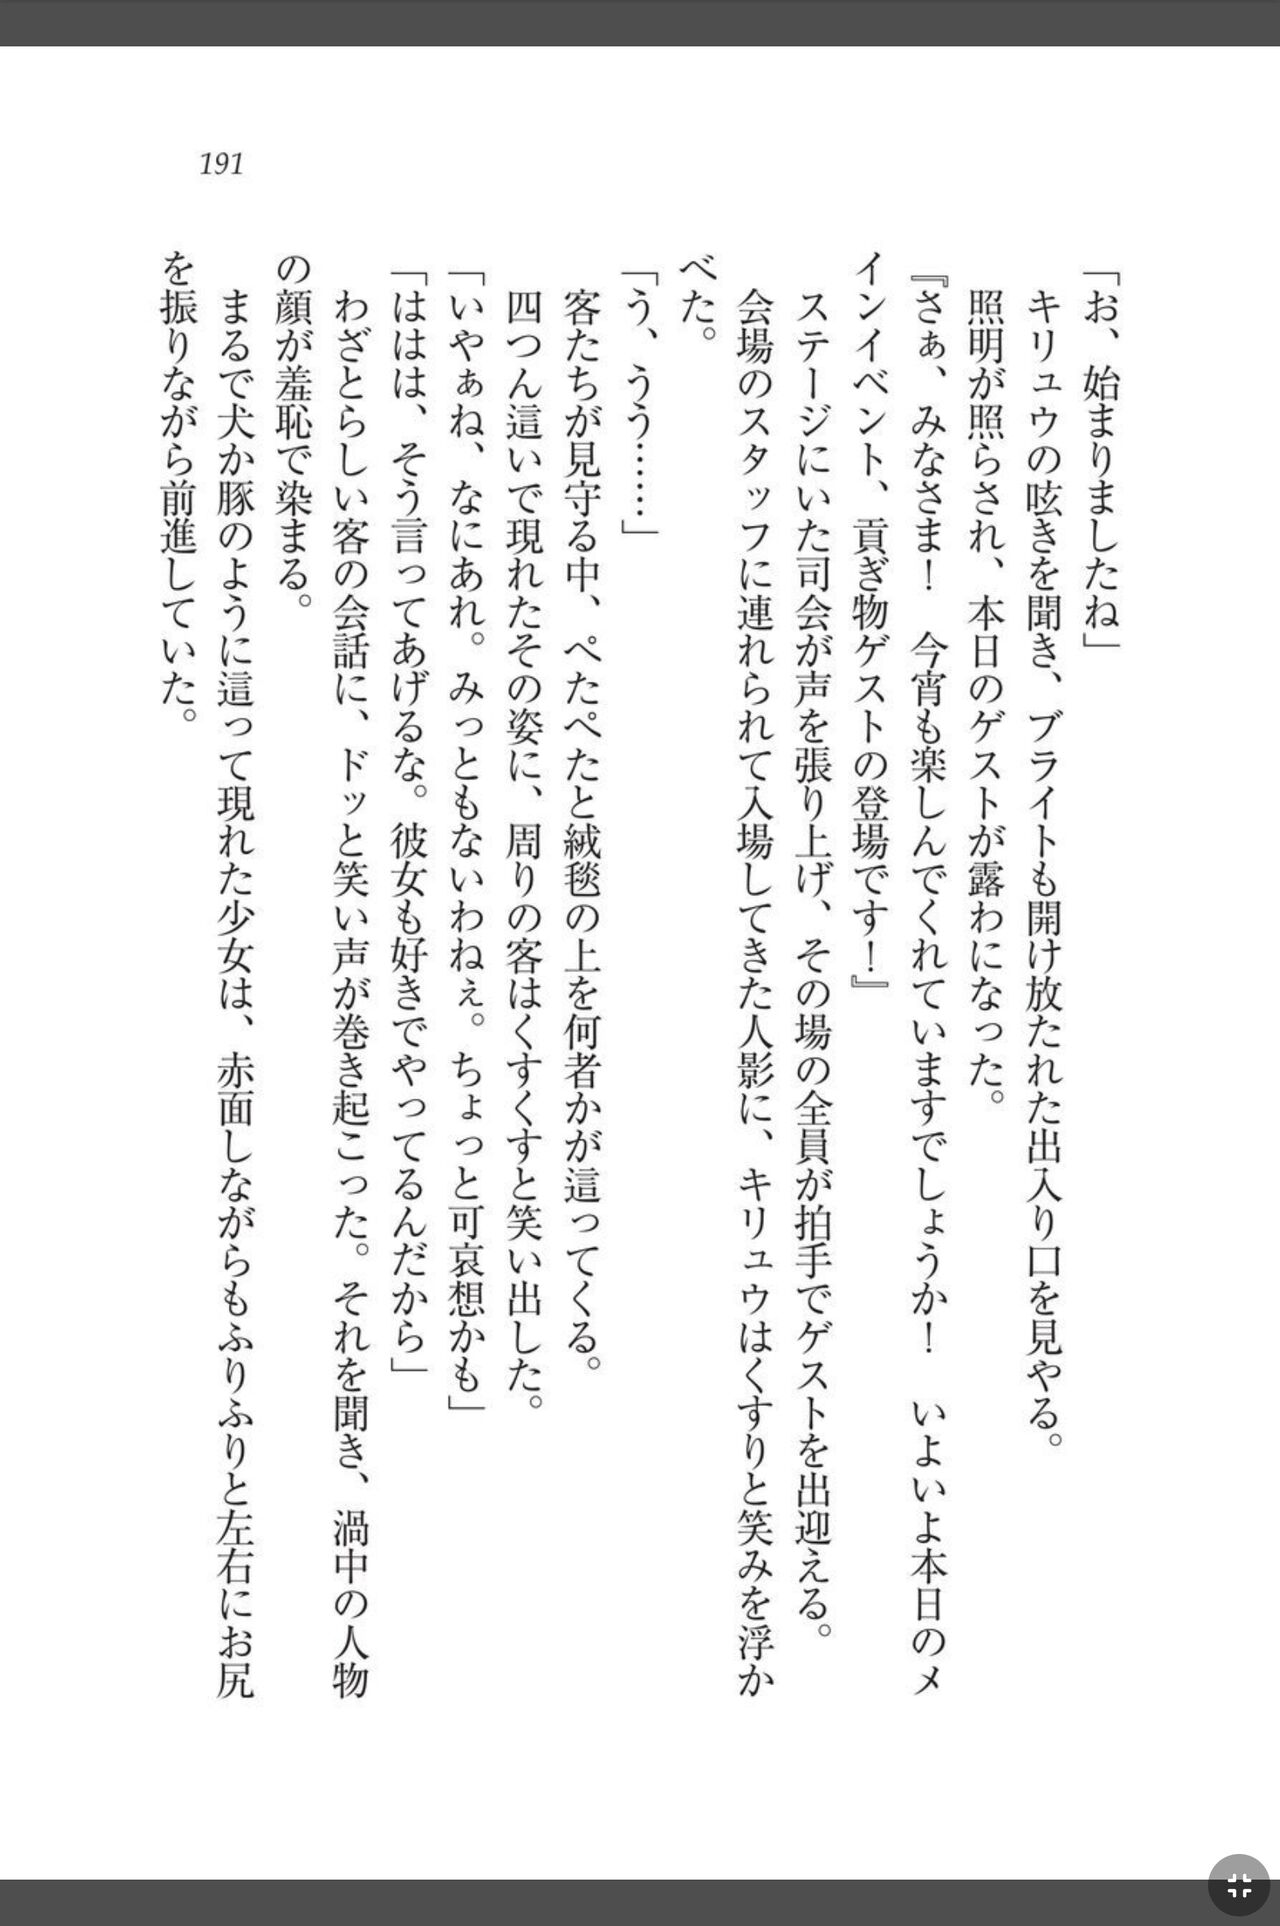 191
「お、始まりましたね」
キリュウの呟きを聞き、ブライトも開け放たれた出入り口を見やる。
照明が照らされ、本日のゲストが露わになった。
『さぁ、みなさま！　今宵も楽しんでくれていますでしょうか！　いよいよ本日のメ
インイベント、貢ぎ物ゲストの登場です！』
ステージにいた司会が声を張り上げ、その場の全員が拍手でゲストを出迎える。
会場のスタッフに連れられて入場してきた人影に、キリュウはくすりと笑みを浮か
べた。
「う、うう……」
客たちが見守る中、ぺたぺたと絨毯の上を何者かが這ってくる。
四つん這いで現れたその姿に、周りの客はくすくすと笑い出した。
「いやぁね、なにあれ。みっともないわねぇ。ちょっと可哀想かも」
「ははは、そう言ってあげるな。彼女も好きでやってるんだから」
わざとらしい客の会話に、ドッと笑い声が巻き起こった。それを聞き、渦中の人物
の顔が羞恥で染まる。
まるで犬か豚のように這って現れた少女は、赤面しながらもふりふりと左右にお尻
を振りながら前進していた。